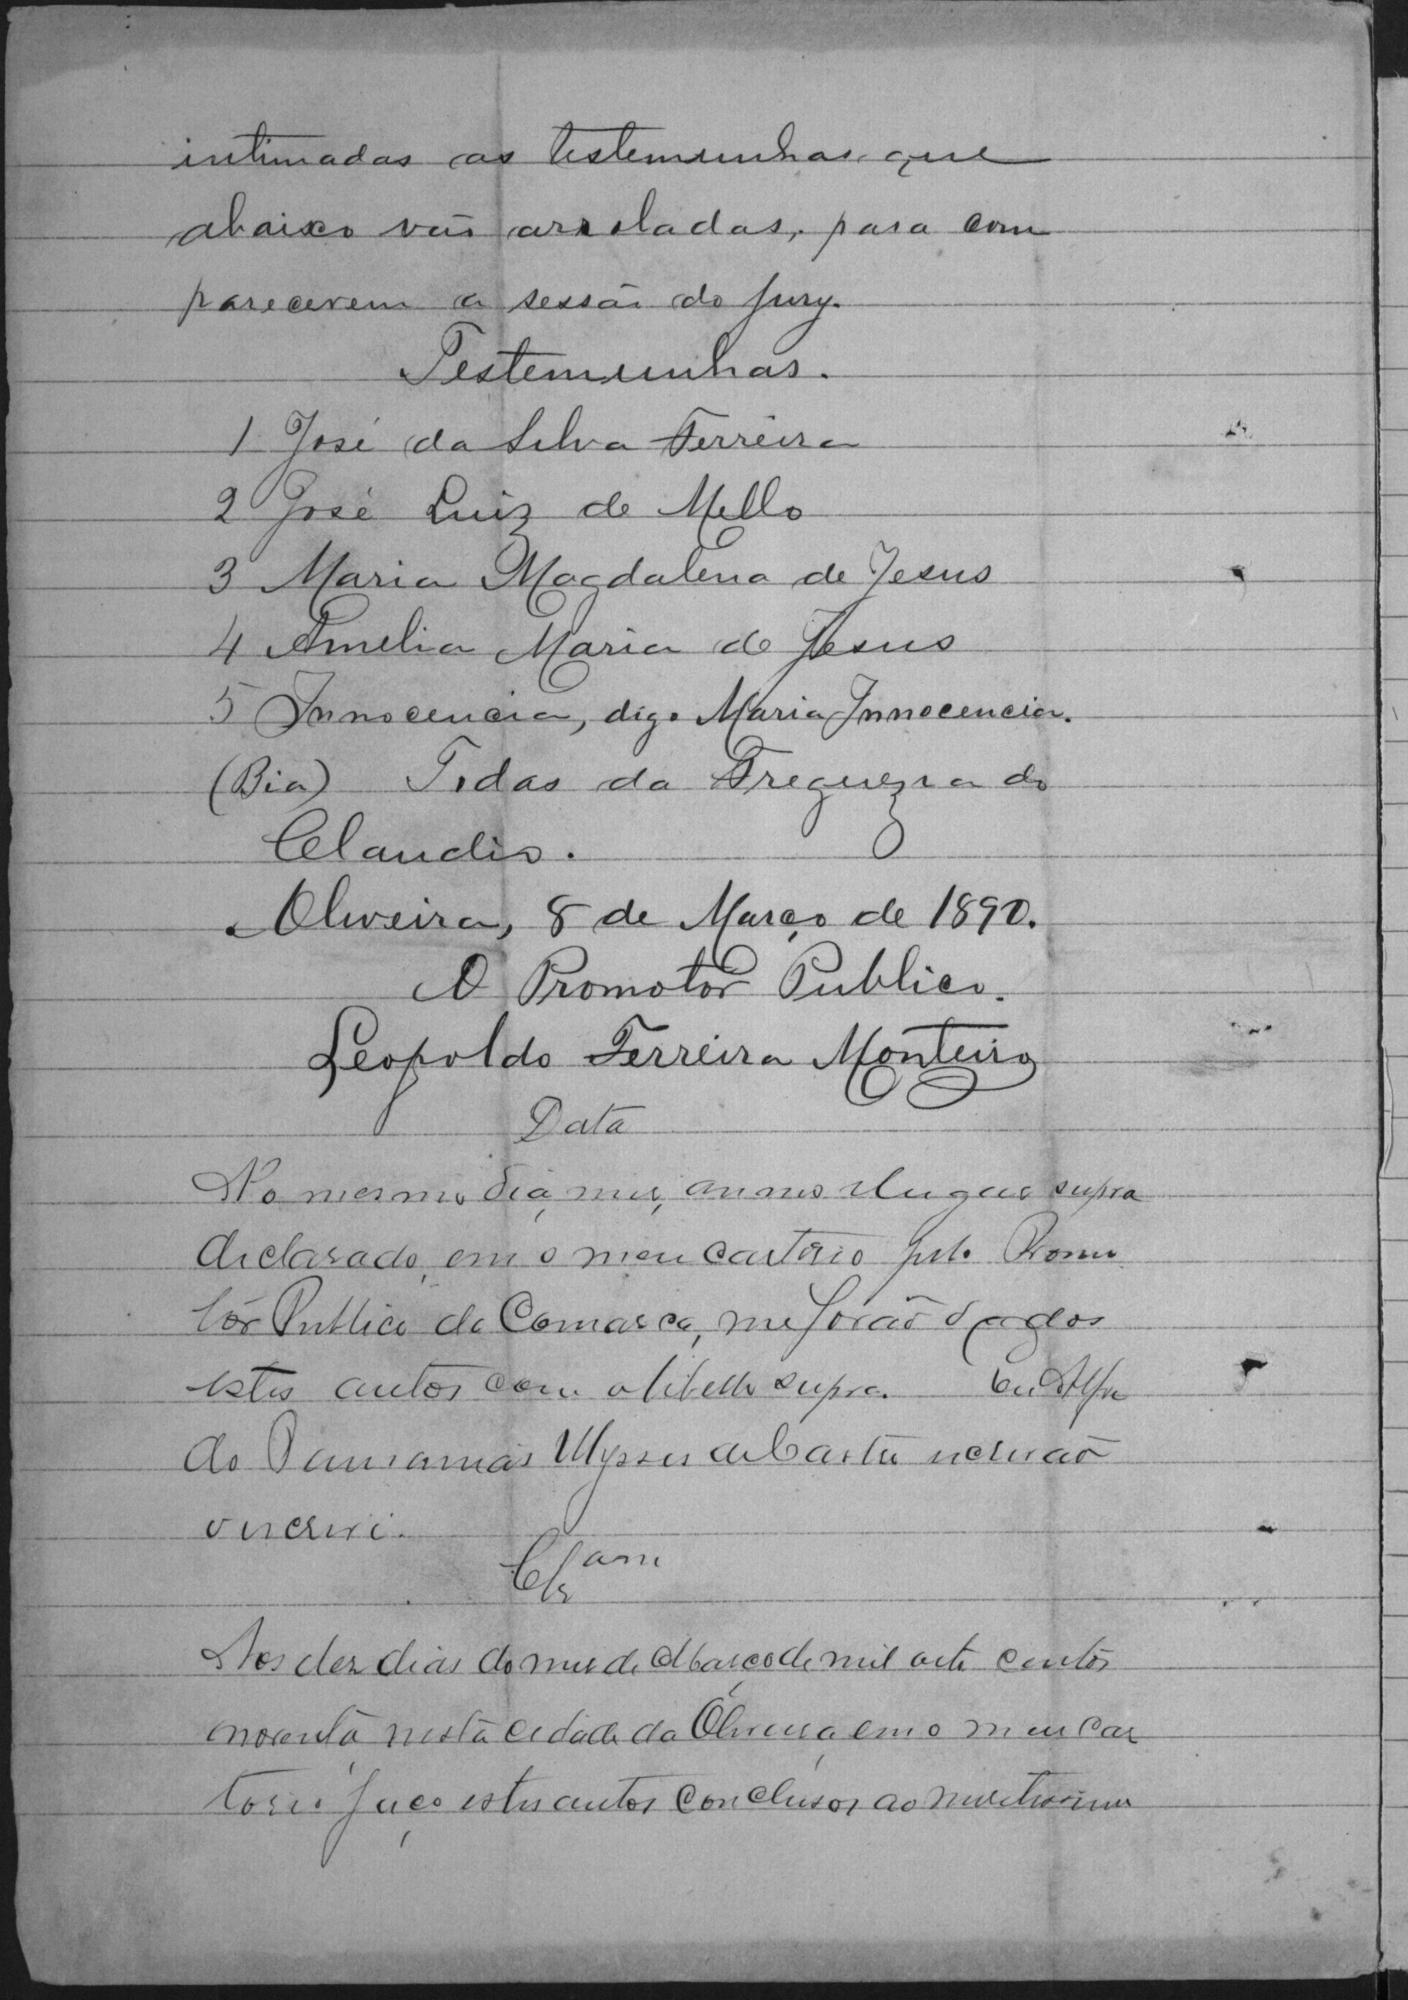 intimadas as testemunhas que
abaixo vão arroladas, para com
parecerem a sessão do Jury.
Testemunhas.
1 José da Silva Ferreira
2 José Luiz de Mello
3 Maria Magdalena de Jesus
4 Amelia Maria de Jesus
5 Innocencia, digo Maria Innocencia.
(Bia) Todas da Freguezia do
Claudio.
Oliveira, 8 de Março de 1890.
O Promotor Publico.
Leopoldo Ferreira Monteiro
Data
No mesmo dia, mes, anno e lugar supra
declarado, em o meu cartorio pelo Promo
tor Publico da Comarca, me forão dados
estes autos com o libello supra. Eu
do Ulysses de Castro escrivão
o escrevi.
Aos dez dias do mes de Março de mil oito centos
noventa nesta cidade da Oliveira em o meu car
torio faço estes autos conclusos ao meritissimo